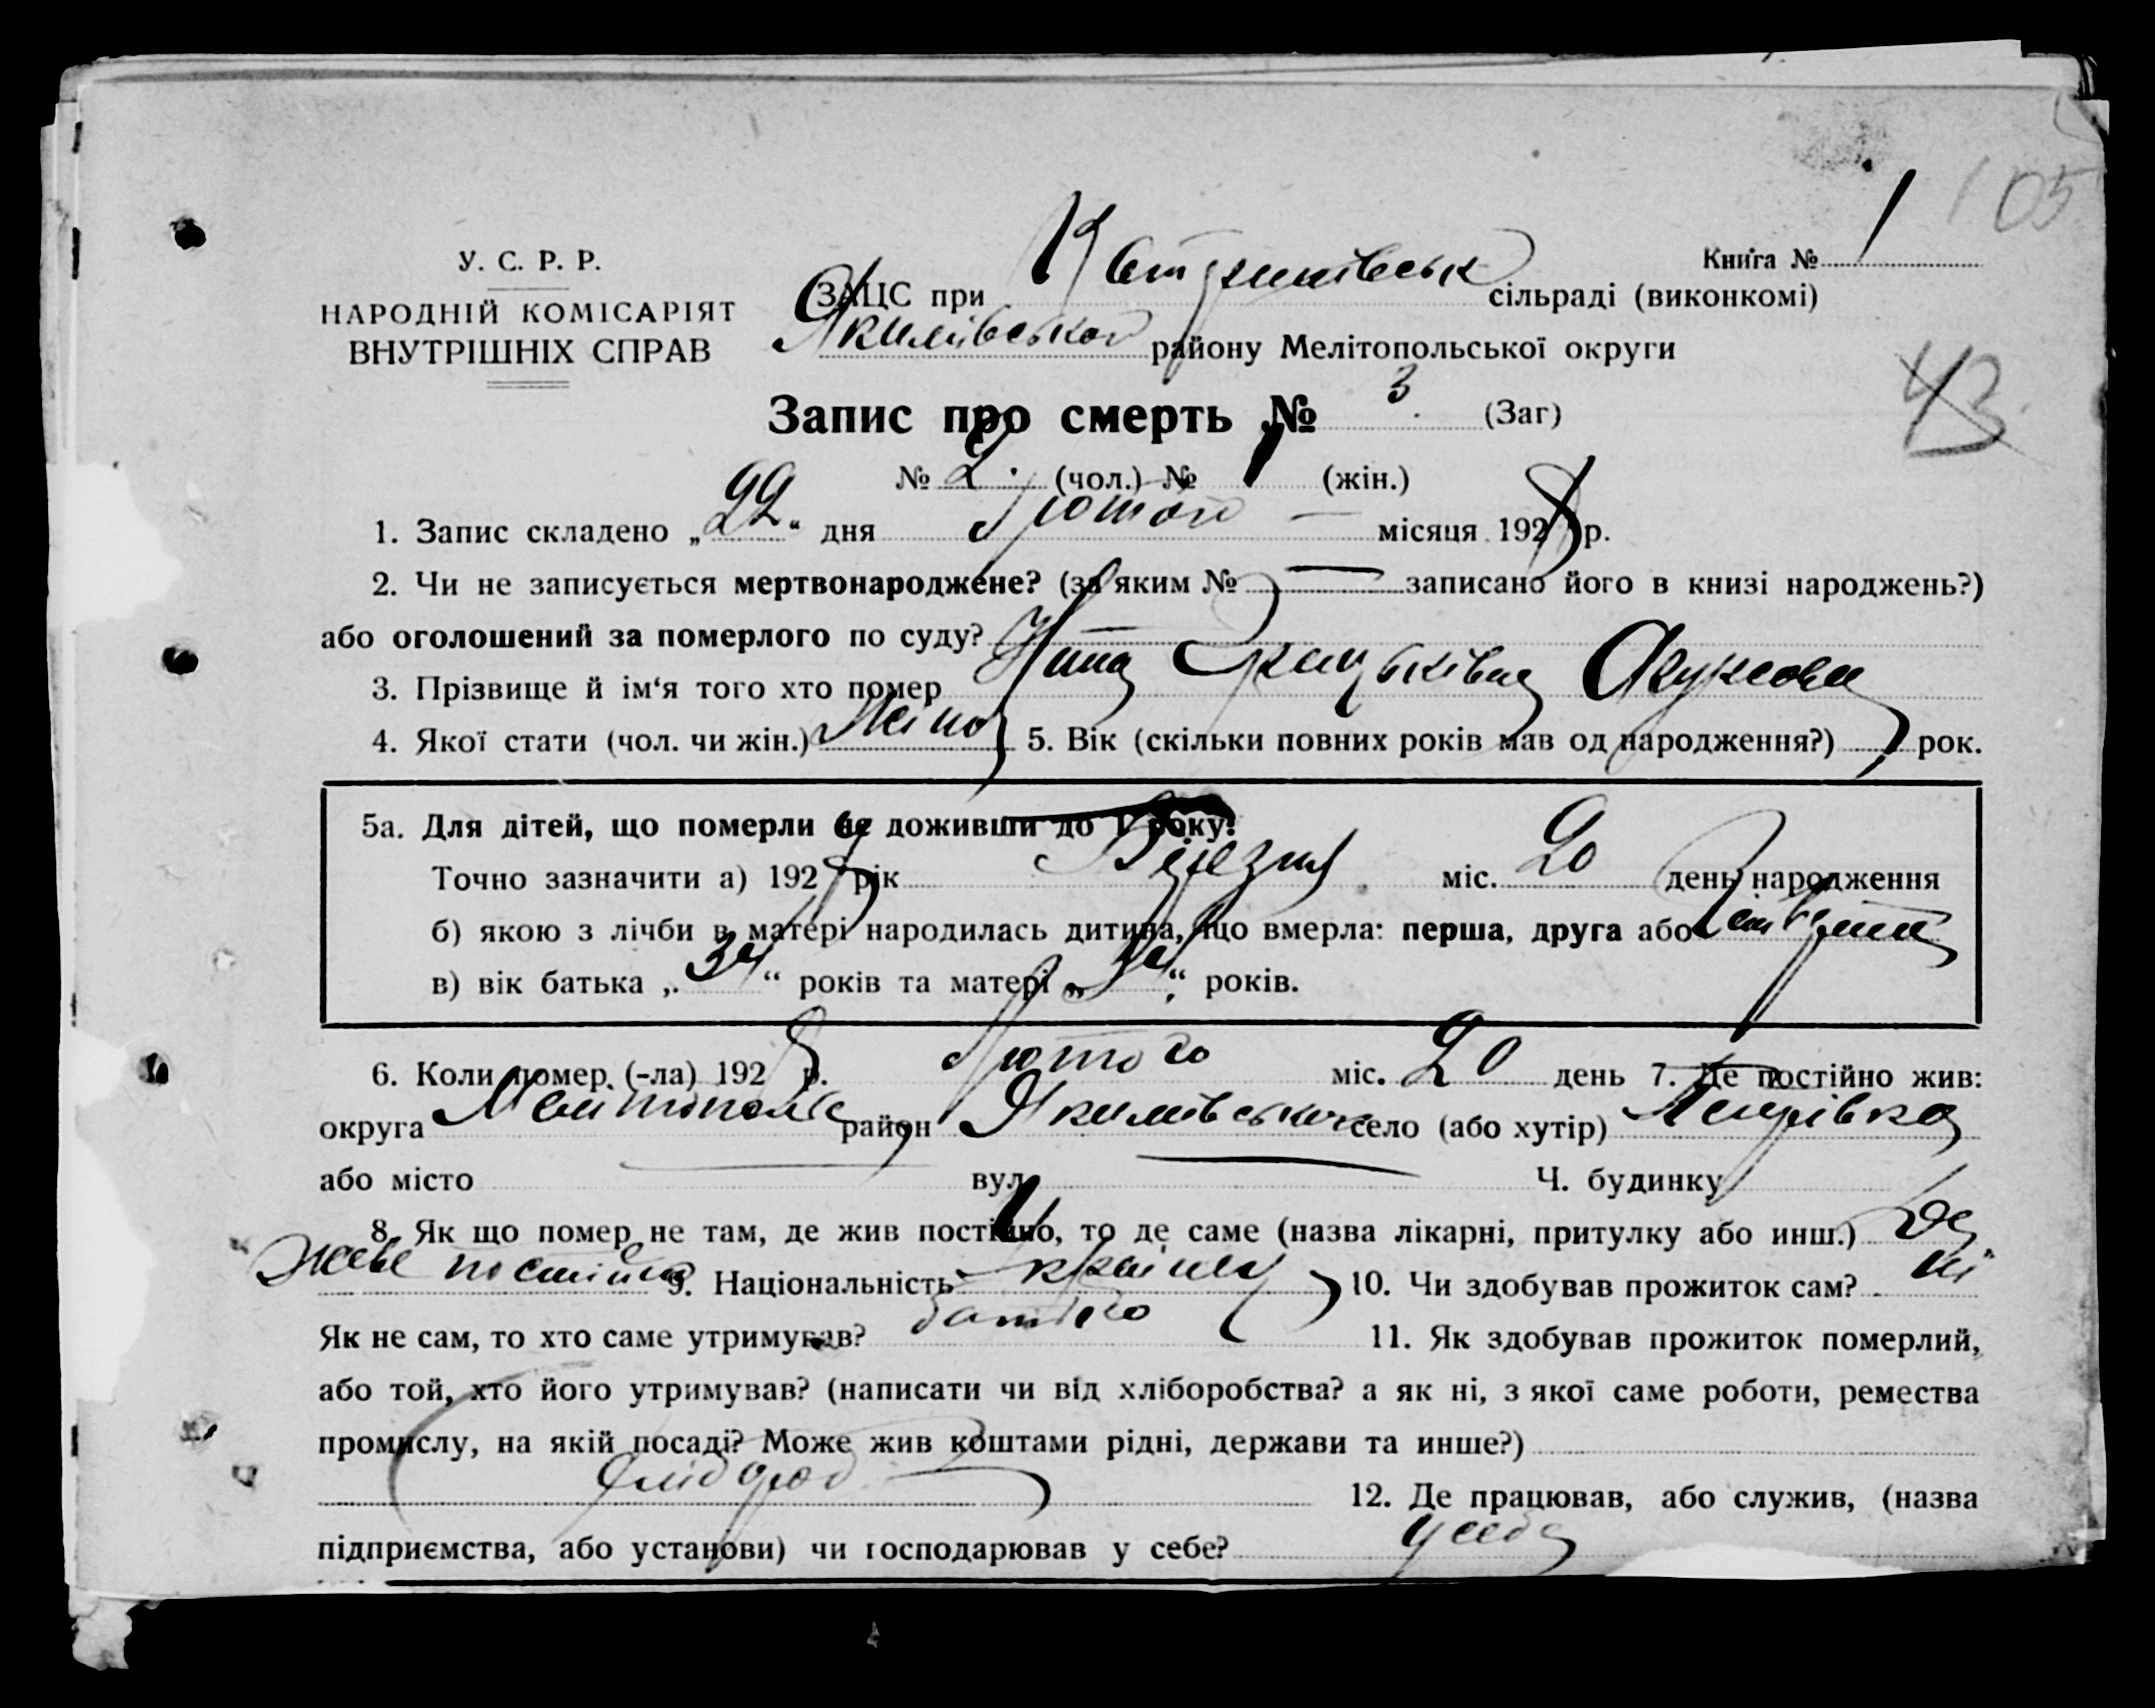 105
Книга № 1
У. С. Р. Р.
НАРОДНІЙ КОМІСАРІЯТ
ВНУТРІШНІХ СПРАВ
ЗАЦС при сільраді (виконкомі)
Якимівської району Мелітопольської округи
43
Запис про смерть № 3. (Заг)
№ 2. (чол.) № 1 (жін.)
1. Запис складено „22“ дня Лютого — місяця 1928 р.
2. Чи не записується мертвонароджене? (за яким № — записано його в книзі народжень?)
або оголошений за померлого по суду? —
3. Прізвище й ім‘я того хто помер
4. Якої статі (чол. чи жін.) Жіноч 5. Вік (скільки повних років мав од народження?) рок.
5а. Для дітей, що померли не доживши до 1 року:
Точно зазначити а) 192 рік Березня міс. 20 день народження
б) якою з лічби в матері народилась дитина, що вмерла: перша, друга або четверта
в) вік батька „34“ років та матері „34“ років.
6. Коли помер (-ла) 1928 р. Лютого міс. 20 день 7. Де постійно жив:
округа Мелітопольс район Якимівського село (або хутір)
або місто — вул. — Ч. будинку
8. Як що помер не там, де жив постійно, то де саме (назва лікарні, притулку або инш.) Де
живе постійно 9. Національність Україн 10. Чи здобував прожиток сам? ні
Як не сам, то хто саме утримував? батько 11. Як здобував прожиток померлий,
або той, хто його утримував? (написати чи від хліборобства? а як ні, з якої саме роботи, ремества
промислу, на якій посаді? Може жив коштами рідні, держави та инше?)
хлібороб 12. Де працював, або служив, (назва
підприємства, або установи) чи господарював у себе? у себе